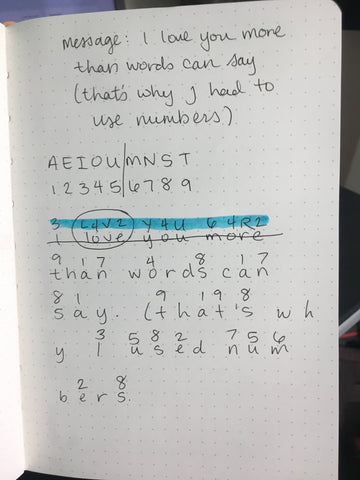 message: I love you more
than words can say
(that's why I had to
use numbers)
AEIOU|MNST
12345|6789
3 L4V2 Y4U 64R2
I love you more
9 1 7 4 8 1 7
than words can
8 1 9 1 9 8
say. (that's wh
3 5 8 2 7 5 6
y I used num
2 8
bers.